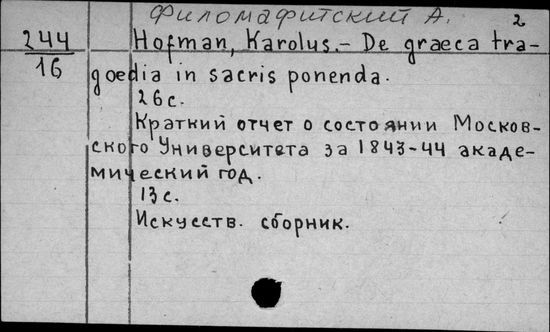 Филомафитский А. 2
244
16
Hofman, Karolus.- De graeca tra-
goedia in sacris ponenda.
26 с.
Краткий отчет о состоянии Москов-
ского Университета за 1843-44 акаде-
мический год.
13 с.
Искусств. сборник.